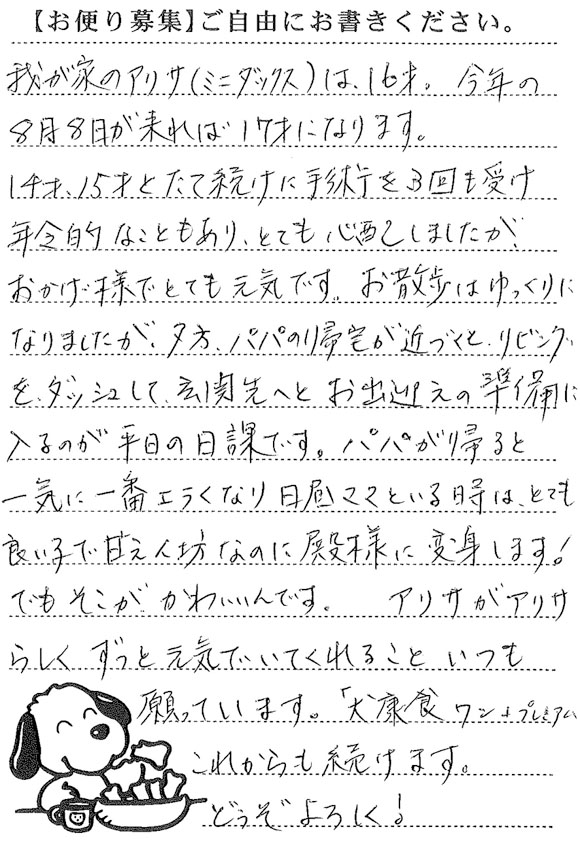 【お便り募集】ご自由にお書きください。
我が家のアリサ(ミニダックス)は、16才。今年の
8月8日が来れば17才になります。
14才、15才とたて続けに手術を3回も受け
年令的なこともあり、とても心配しましたが、
おかげ様でとても元気です。お散歩はゆっくりに
なりましたが、夕方、パパの帰宅が近づくと、リビング
を、ダッシュして、玄関先へとお出迎えの準備に
入るのが平日の日課です。パパが帰ると
一気に一番エラくなり日昼ママといる時は、とても
良い子で甘えん坊なのに殿様に変身します!
でもそこが、かわいいんです。 アリサがアリサ
らしくずっと元気でいてくれることいつも
願っています。「犬康食ワン+プレミアム
これからも続けます。
どうぞよろしく!